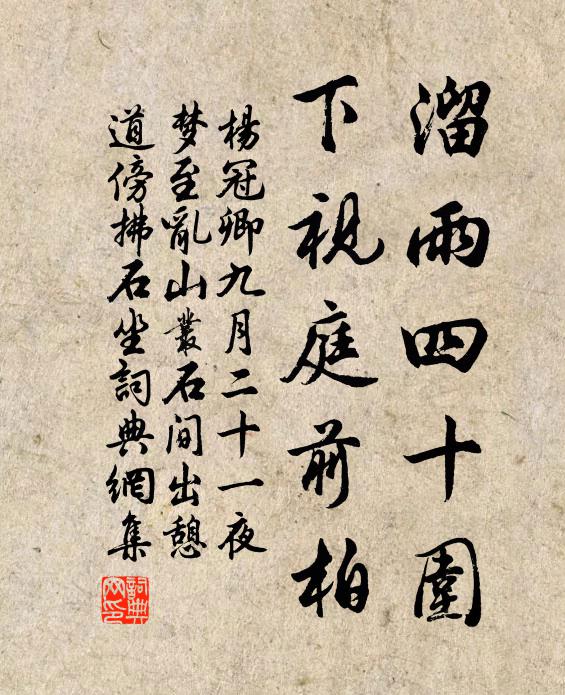 溜雨四十圍
下視庭前柏
楊冠卿九月二十一夜
梦至亂山叢石间出憩
道傍拂石坐詞典網集
詞典网印